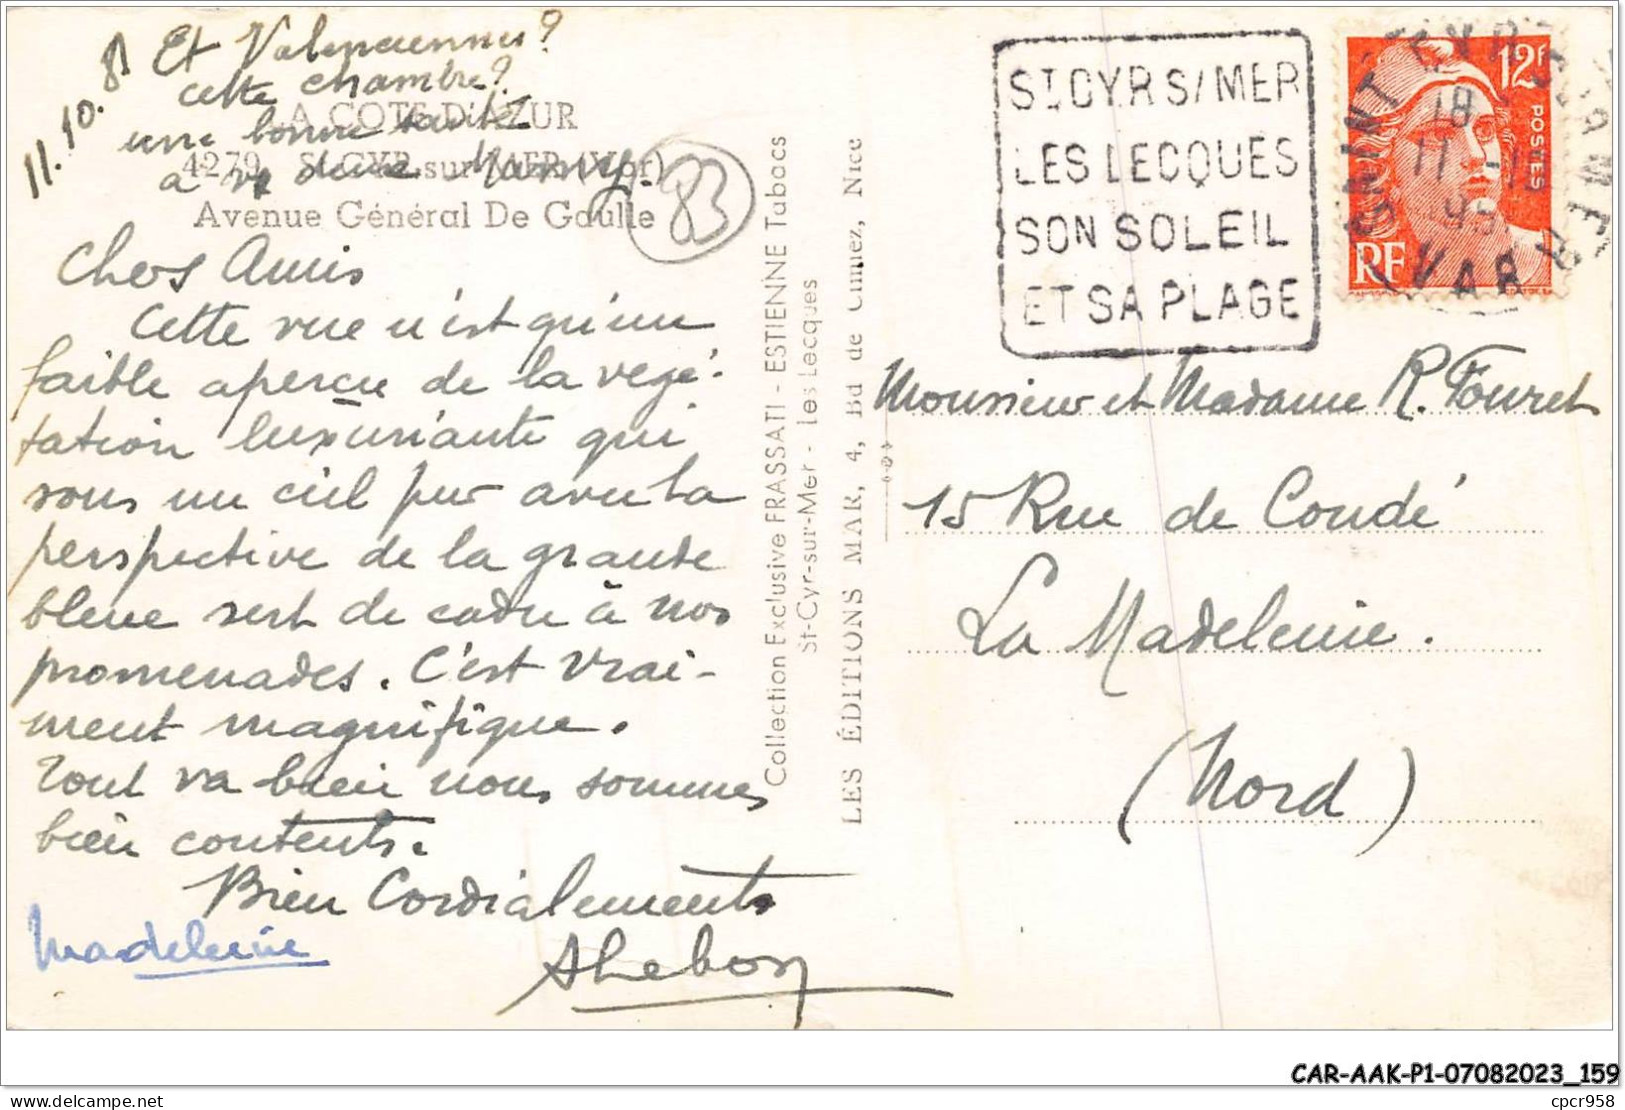 11.10.
Et Valenciennes?
cette chambre?
une bonne santé
a
LA COTE D'AZUR
4279. St-CYR-sur-MER (Var)
Avenue Général De Gaulle
83
Chers Amis
Cette vue n'est qu'un
faible apercu de la vegé-
tation luxuriante qui
sous un ciel pur avec la
perspective de la grande
bleue sert de cadre à nos
promenades. C'est vrai-
ment magnifique.
Tout va bien nous sommes
bien contents.
Bien Cordialements
Madeleine
Collection Exclusive FRASSATI - ESTIENNE Tabacs
St-Cyr-sur-Mer - Les Lecques
LES ÉDITIONS MAR, 4, Bd de Cimiez, Nice
ST CYR S/MER
LES LECQUES
SON SOLEIL
ET SA PLAGE
12f
POSTES
RF
SAINT CYR SUR MER
18
11 -10
VAR
Monsieur et Madame R. Fouret
15 Rue de Condé
La Madeleine.
(Nord)
CAR-AAK-P1-07082023_159
cpcr958